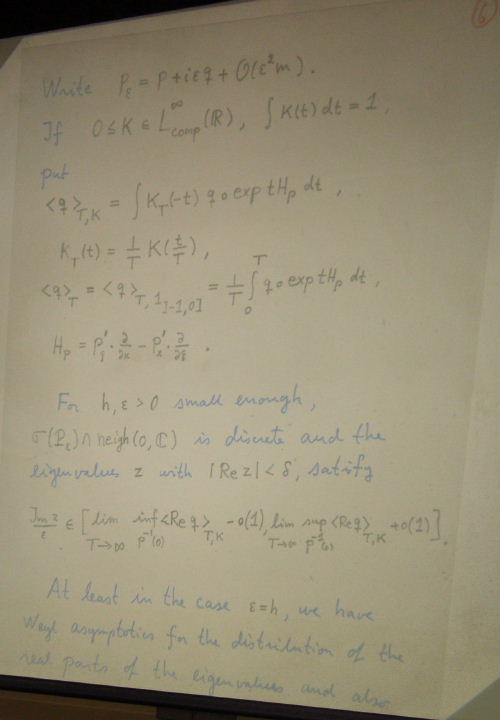 6
Write P_ε = p + iεq + O(ε²m).
If 0 ≤ K ∈ L^∞_comp(ℝ), ∫ K(t) dt = 1,
put
<q>_{T,K} = ∫ K_T(-t) q∘exp tH_p dt,
K_T(t) = 1/T K(t/T),
<q>_T = <q>_{T, 1_{]-1,0]}} = 1/T ∫_0^T q∘exp tH_p dt,
H_p = p'_ξ · ∂/∂x - p'_x · ∂/∂ξ.
For h, ε > 0 small enough,
σ(P_ε) ∩ neigh(0, ℂ) is discrete and the
eigenvalues z with |Re z| < δ, satify
Im z/ε ∈ [lim_{T→∞} inf_{p^{-1}(0)} <Re q>_{T,K} - o(1), lim_{T→∞} sup_{p^{-1}(0)} <Re q>_{T,K} + o(1)].
At least in the case ε = h, we have
Weyl asymptotics for the distribution of the
real parts of the eigenvalues and also